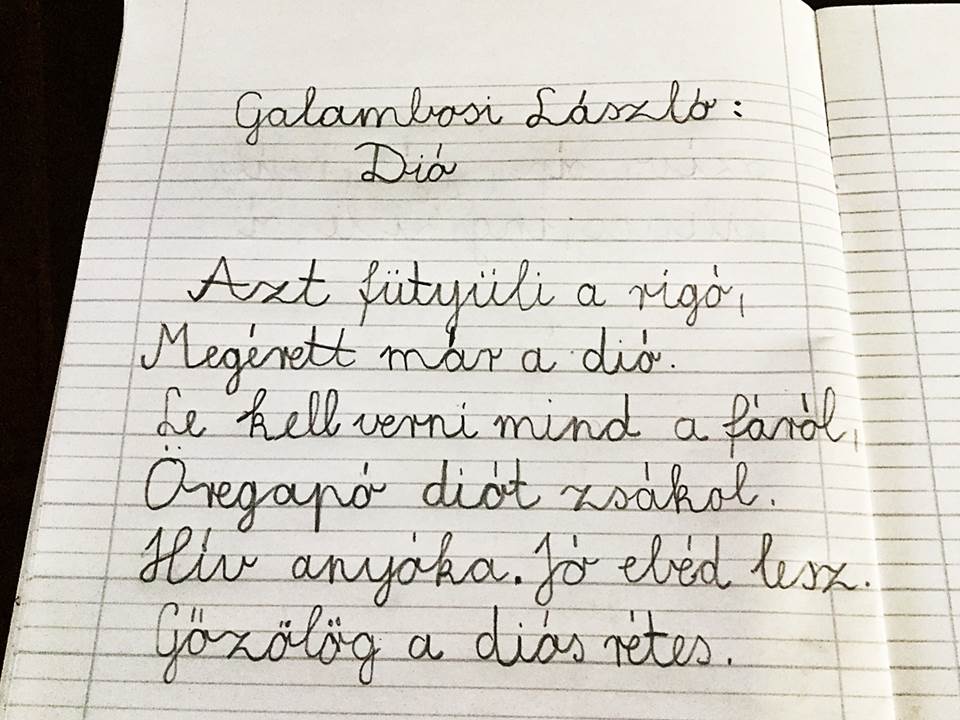 Galambosi László:
Dió
Azt fütyüli a rigó,
Megérett már a dió.
Le kell verni mind a fáról,
Öregapó diót zsákol.
Hív anyóka. Jó ebéd lesz.
Gőzölög a diós rétes.